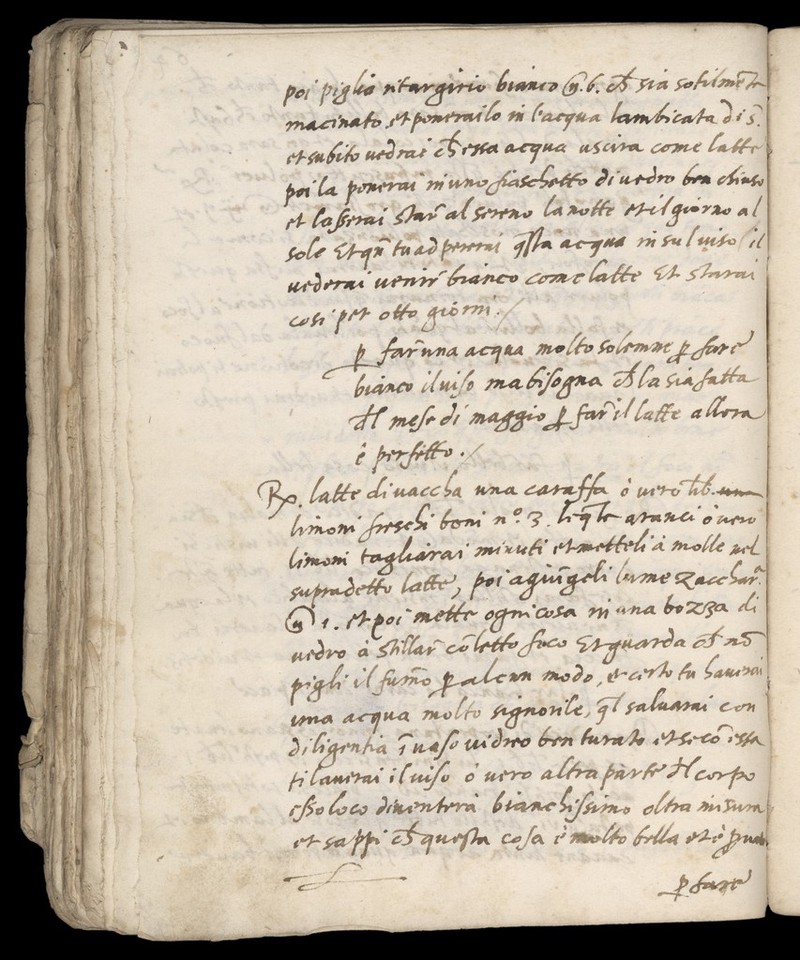 poi piglia litargirio bianco ℥. 6. ch̄ sia sotilmēte
macinato, et ponerailo in l'acqua lambicata di s.̄
et subito uedrai ch̄ essa acqua uscira come latte
poi la ponerai in uno fiaschetto di uedro ben chiuso
et lasserai star̄ al sereno la notte et il giorno al
sole Et qn̄ tu adpererai q̄sta acqua in sul uiso il
uederai uenir̄ bianco come latte Et starai
cosi per otto giorni ./
ꝑ far̄ una acqua molto solemne ꝑ fare
bianco il uiso ma bisogna ch̄ la sia fatta
d̄l mese di maggio ꝑ far̄ il latte allora
è perfetto ./
Rx. latte di uaccha una caraffa ò uero lib.
limoni freschi boni n.º 3. leq̄le aranci ò uero
limoni tagliarai minuti et metteli à molle nel
supradetto latte, poi agiūgeli lume zacchar.̄
℥ 1. et poi mette ogni cosa in una bozza di
uedro à stillar̄ cō letto foco Et guarda ch̄ nō
pigli il fumo ꝑ alcun modo, et certo tu hauerai
una acqua molto signorile, q̄l saluarai con
diligentia ī uaso uidreo ben turato et se cō essa
ti lauerai il uiso ò uero altra parte d̄l corpo
esso loco diuenterà bianchissimo oltra misura
et sappi ch̄ questa cosa è molto bella et è
ꝑ fare